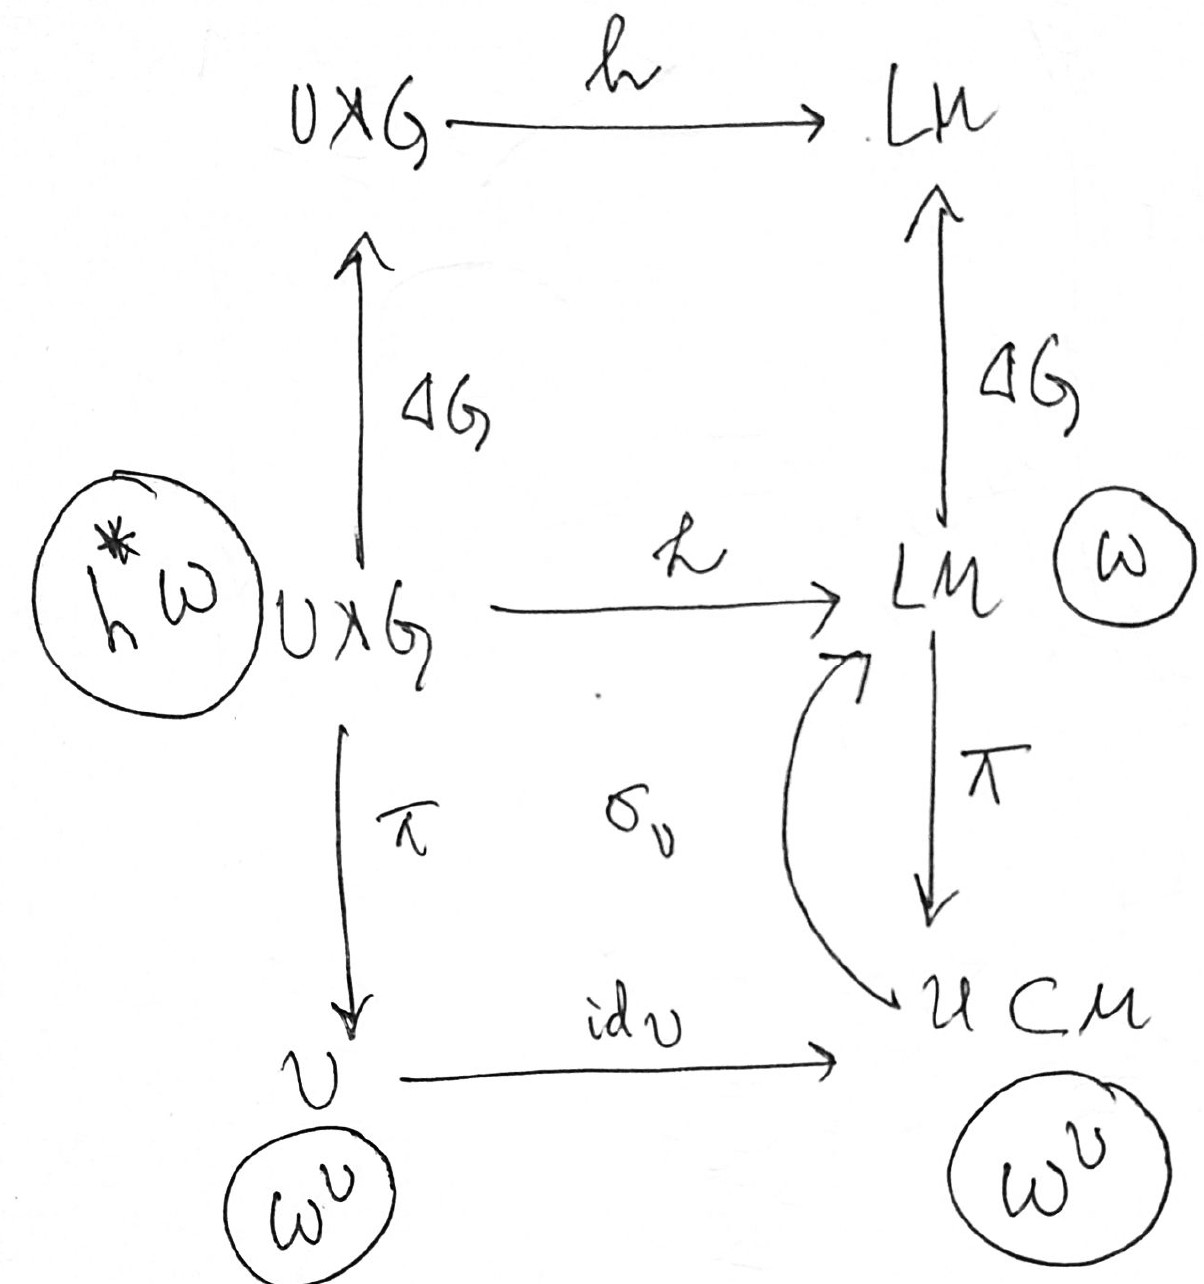 h
U×G LM
◁G ◁G
h*ω U×G h LM ω
π σ_U π
id_U U ⊂ M
U
ω^U ω^U